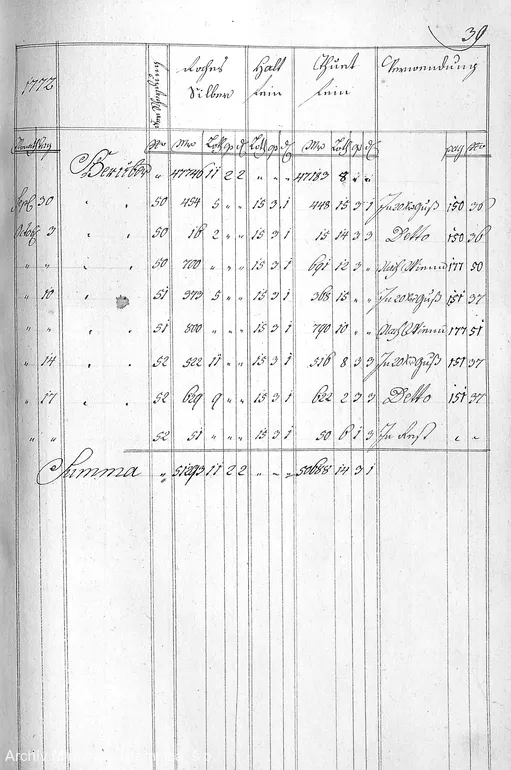 39
1772 Rohes Halt Thuet Verwendung
Silber fein fein
Nro Mr Loth q d Loth q d Mr Loth q d pag Nro
47746 11 2 2 " " " 47183 8 " "
Sept 30 " " 50 454 5 " " 15 3 1 448 15 3 1 150 39
Octob 3 " " 50 16 2 " " 15 3 1 15 14 3 3 Detto 150 36
" " " " 50 700 " " " 15 3 1 691 12 3 " Nach Wienn 177 50
" 10 " " 51 373 5 " " 15 3 1 368 15 " " 151 37
" " " " 51 800 " " " 15 3 1 790 10 " " Nach Wienn 177 51
" 14 " " 52 522 11 " " 15 3 1 516 8 3 3 151 37
" 17 " " 52 629 9 " " 15 3 1 622 2 3 3 Detto 151 37
" " 52 51 " " " 15 3 1 50 6 1 3 In Rest " "
Summa " 51293 11 2 2 " " " 50688 14 3 1